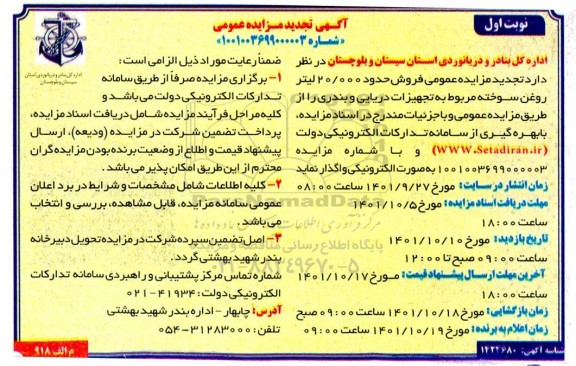 نوبت اول
آگهی تجدید مزایده عمومی
«شماره ۱۰۰۱۰۰۳۶۹۹۰۰۰۰۰۳»
اداره کل بنادر و دریانوردی استان
سیستان و بلوچستان
اداره کل بنادر و دریانوردی استان سیستان و بلوچستان در نظر
دارد تجدید مزایده عمومی فروش حدود ۲۰/۰۰۰ لیتر
روغن سوخته مربوط به تجهیزات دریایی و بندری را از
طریق مزایده عمومی و با جزئیات مندرج در اسناد مزایده،
با بهره گیری از سامانه تدارکات الکترونیکی دولت
(WWW.Setadiran.ir) و با شماره مزایده
۱۰۰۱۰۰۳۶۹۹۰۰۰۰۰۳ به صورت الکترونیکی واگذار نماید
زمان انتشار در سایت: مورخ ۱۴۰۱/۹/۲۷ ساعت ۰۸:۰۰
مهلت دریافت اسناد مزایده: مورخ ۱۴۰۱/۱۰/۵
ساعت ۱۸:۰۰
تاریخ بازدید: مورخ ۱۴۰۱/۱۰/۱۰ از
ساعت ۰۹:۰۰ صبح تا ۱۲:۰۰
آخرین مهلت ارسال پیشنهاد قیمت: مورخ ۱۴۰۱/۱۰/۱۷
ساعت ۱۸:۰۰
زمان بازگشایی: مورخ ۱۴۰۱/۱۰/۱۸ ساعت ۰۹:۰۰ صبح
زمان اعلام به برنده: مورخ ۱۴۰۱/۱۰/۱۹ ساعت ۰۹:۰۰
ضمناً رعایت موارد ذیل الزامی است:
۱- برگزاری مزایده صرفاً از طریق سامانه
تدارکات الکترونیکی دولت می باشد و
کلیه مراحل فرآیند مزایده شامل دریافت اسناد مزایده،
پرداخت تضمین شرکت در مزایده (ودیعه)، ارسال
پیشنهاد قیمت و اطلاع از وضعیت برنده بودن مزایده گران
محترم از این طریق امکان پذیر می باشد.
۲- کلیه اطلاعات شامل مشخصات و شرایط در برد اعلان
عمومی سامانه مزایده، قابل مشاهده، بررسی و انتخاب
می باشد.
۳- اصل تضمین سپرده شرکت در مزایده تحویل دبیرخانه
بندر شهید بهشتی گردد.
شماره تماس مرکز پشتیبانی و راهبردی سامانه تدارکات
الکترونیکی دولت: ۴۱۹۳۴-۰۲۱
آدرس: چابهار - اداره بندر شهید بهشتی
تلفن: ۳۱۲۸۳۰۰۰-۰۵۴
شناسه آگهی: ۱۴۲۲۶۸۰
م الف ۹۱۸